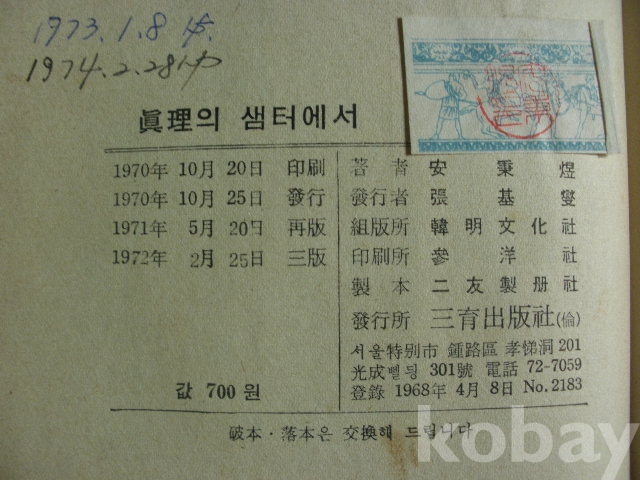 1973.1.8
1974.2.28
眞理의 샘터에서
1970年 10月 20日 印刷
1970年 10月 25日 發行
1971年 5月 20日 再版
1972年 2月 25日 三版
값 700 원
著者 安秉煜
發行者 張基燮
組版所 韓明文化社
印刷所 參洋社
製本 二友製册社
發行所 三育出版社(倫)
서울特別市 鍾路區 孝悌洞 201
光成삘딩 301號 電話 72-7059
登錄 1968年 4月 8日 No.2183
破本·落本은 交換해 드립니다
kobay